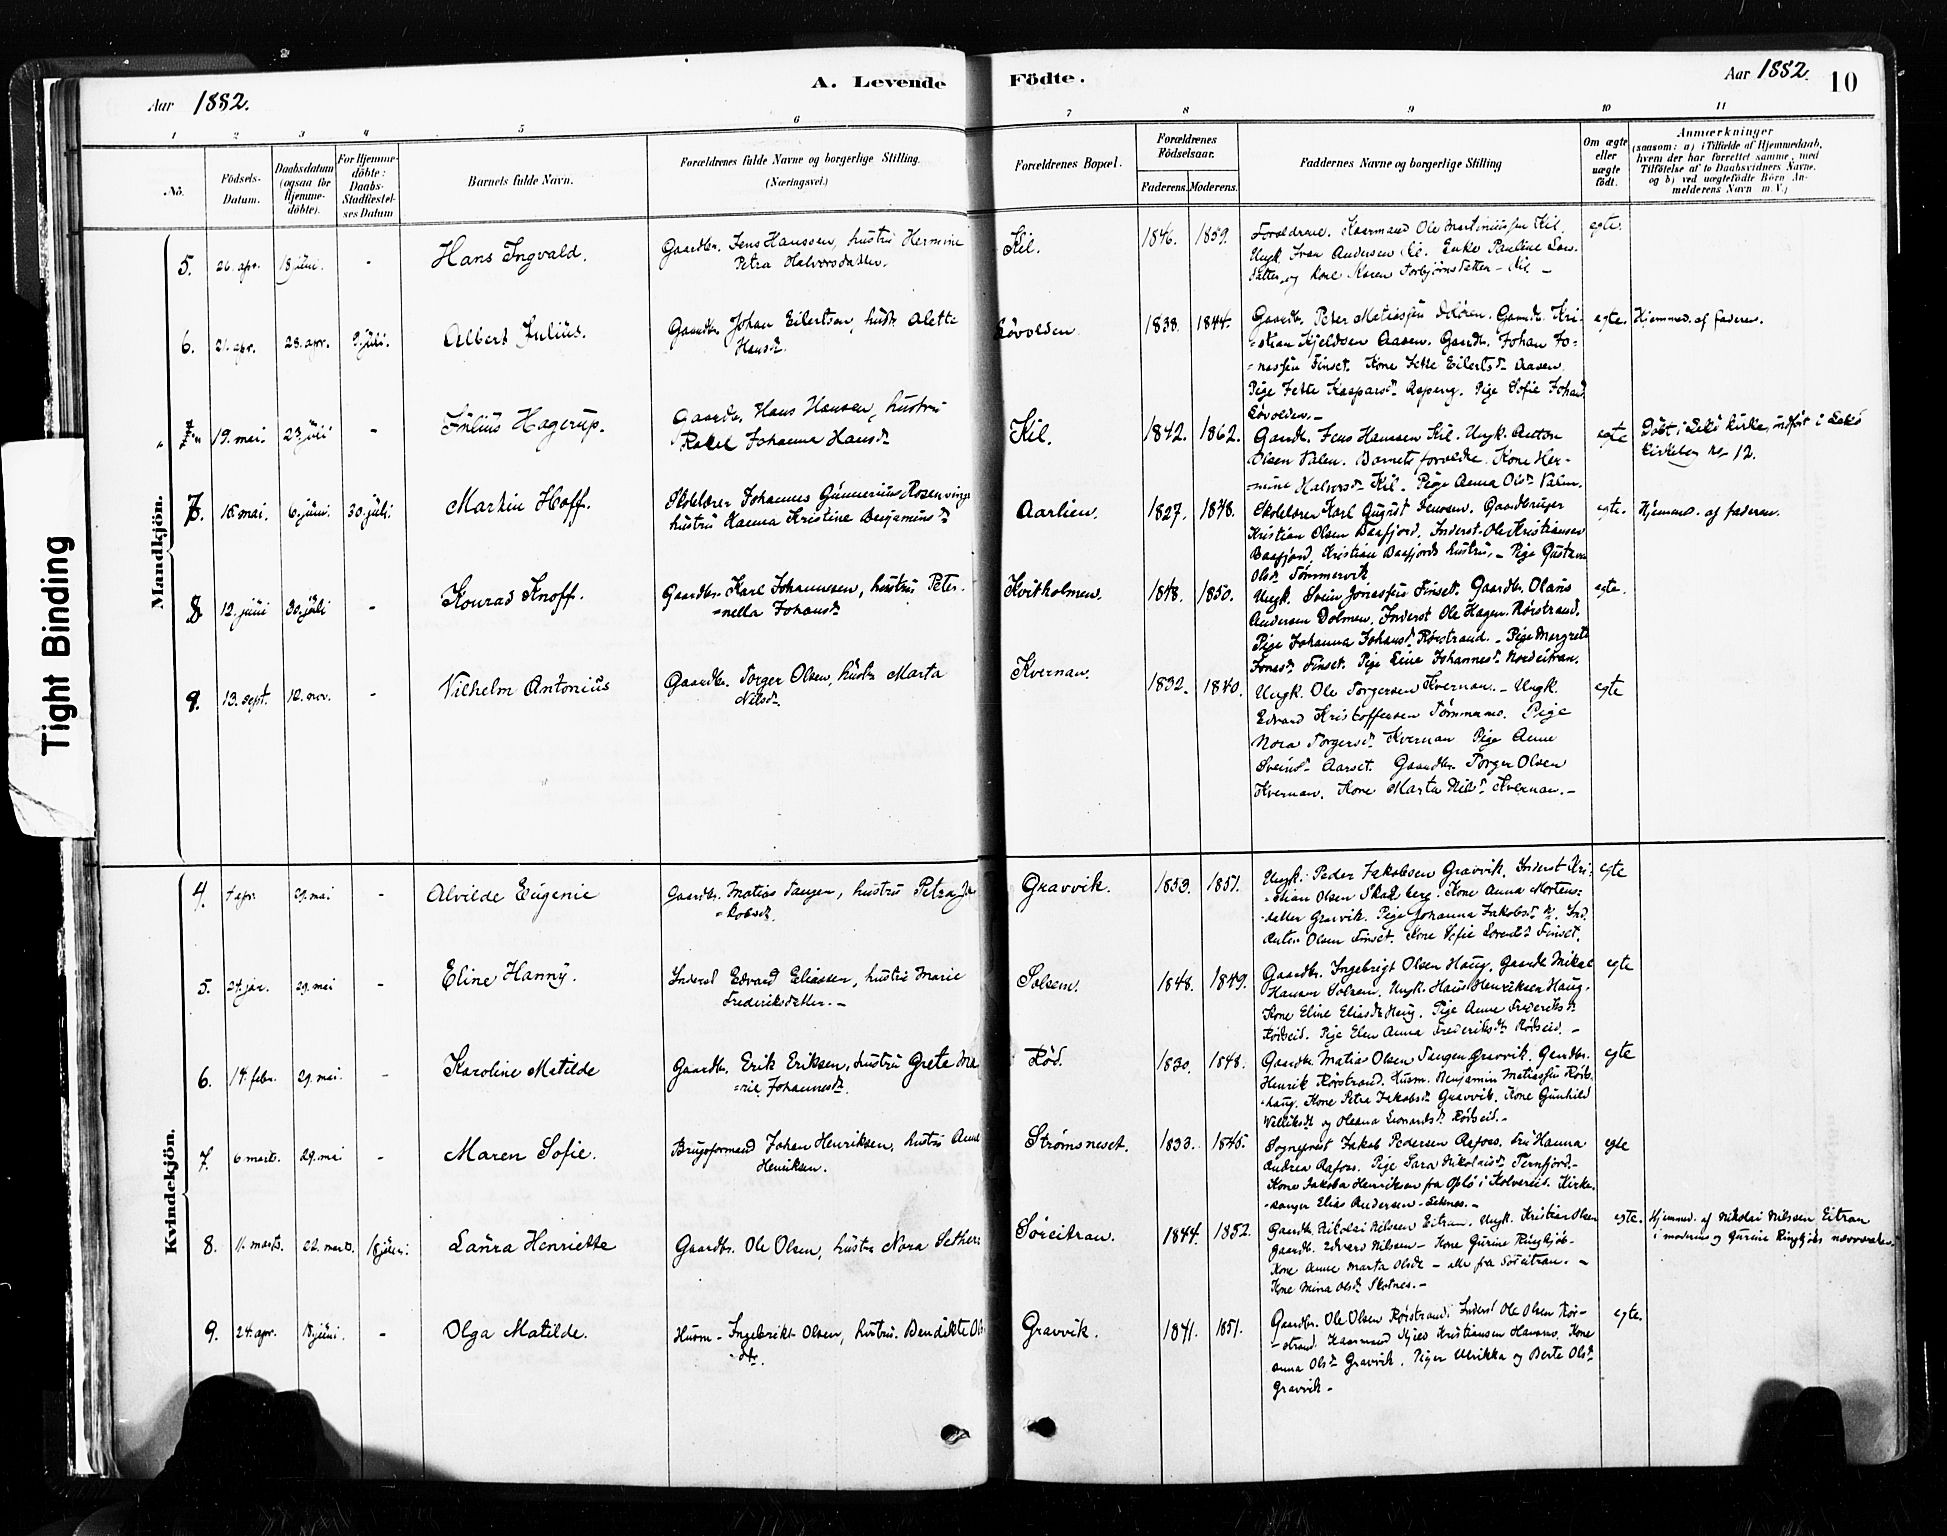 Aar 1882.
A. Levende
Födte.
Aar 1882.
10
1 2 3 4 5 6 7 8 9 10 11
No.
Födsels-
Datum.
Daabsdatum
(ogsaa for
Hjemme-
döbte).
For Hjemme-
döbte:
Daabs-
Stadfæstel-
ses Datum
Barnets fulde Navn.
Forældrenes fulde Navne og borgerlige Stilling.
(Næringsvei.)
Forældrenes Bopæl.
Forældrenes
Födselsaar.
Faderens. Moderens.
Faddernes Navne og borgerlige Stilling
Om ægte
eller
uægte
födt.
Anmærkninger
(saasom: a) i Tilfælde af Hjemmedaab,
hvem der har forrettet samme, med
Tilföielse af to Daabsvidners Navne.
og b) ved uægtefödte Börn An-
melderens Navn m. V.)
Tight Binding
Mandkjön.
5. 26. apr. 18 juni. - Hans Ingvald.
Gaardbr. Jens Hanssen, hustru Hermine
Petra Halvorsdatter.
Kil. 1846. 1859.
Forældrene. Kaarmand Ole Martiniussen Kil.
Ungk. Iver Andersen Kil. Enke Pauline Lars-
datter og Kone Karen Torbjørnsdatter - Kil -
egte.
6. 21. apr. 23. apr. 9. juli. Albert Julius.
Gaardbr. Johan Eilertsen, hustr. Alette
Hansd.
Løvolden 1838. 1844.
Gaardbr. Peter Matiassen Gaardbr. Kri-
stian Kjeldsen Aasen. Gaardbr. Johan Jo-
nassen Finset. Kone Jette Eilertsd. Aasen.
Pige Jette Kaspersd. Aspeng. Pige Sofie Johansd.
Løvolden. -
egte. Hjemmed. af faderen.
19. mai. 23 juli - Julius Hagerup.
Gaardbr. Hans Hansen, hustru
Rakel Johanna Hansd.
Kil. 1842. 1862.
Gaardbr. Jens Hanssen Kil. Ungk. Anton
Olsen Valen. Barnets forældre. Kone Her-
mine Halvorsd. Kil. Pige Anna Olsd. Valen.
egte Døbt i Lekø kirke, indført i Lekø
kirkebog No 12.
7. 18 mai. 6 juni. 30. juli. Martin Hoff.
Skolelærer Johannes Gunnerius Rosenvinge
hustru Hanna Kristine Benjaminsd.
Aarlien. 1827. 1848.
Skolelærer Karl August Jensen. Gaardbruger
Kristian Olsen Baafjord. Inderst Ole Kristiansen
Baafjord. Kristian Baafjords hustru. - Pige Gustava
Olsd. Tømmervik
egte. Hjemmed. af faderen.
8. 12. juni 30. juli - Konrad Knoff.
Gaardbr. Karl Johannessen, hustru Peter-
nella Johansd.
Kvitholmen. 1848. 1850.
Ungk. Svein Jonassen Finset. Gaardbr. Olaus
Andersen Dolmen. Inderst Ole Hagen Rørstrand.
Pige Johanna Johansd. Rørstrand. - Pige Margrete
Jonasd. Finset. Pige Line Johannesd. Nordeitran.
egte.
9. 13. sept. 12. nov. - Vilhelm Antonius
Gaardbr. Torger Olsen, hustr. Marta
Nilsd.
Kvernan. 1832. 1840.
Ungk. Ole Torgersen Kvernan. - Ungk.
Edvard Kristoffersen Tømmermo. Pige
Nora Torgersd. Kvernan. Pige Anne
Sveinsd. Aarset. Gaardbr. Torger Olsen
Kvernan. Kone Marta Nilsd. Kvernan. -
egte
Kvindekjön.
4. 7 apr. 29. mai - Alvilde Eugenie
Gaardbr. Matias Tangen, hustru Petra Ja-
kobsd.
Gravvik. 1853. 1851.
Ungk. Peder Jakobsen Gravvik. Inderst Kri-
stian Olsen Skatberg. Kone Anna Mortens-
datter Gravvik. Pige Johanna Jakobsd. Ind.
Anton Olsen Finset. Kone Sofie Finset.
egte
5. 24. jan. 29. mai - Eline Hanny.
Inderst Edvard Eliassen, hustru Marie
Frederiksdatter. -
Solsem. 1848. 1849.
Gaardbr. Ingebrigt Olsen Haug. Gaardbr. Mikal
Hansen Solsem. Ungk. Hans Henriksen Haug.
Kone Eline Eliasd. Haug. Pige Anne Frederiksd.
Rødseid. Pige Elen Anna Frederiksd. Rødseid. -
egte
6. 14. febr. 29. mai. - Karoline Matilde
Gaardbr. Erik Eriksen, hustru Greta Ma-
rie Johannesd.
Rød. 1830. 1848.
Gaardbr. Matias Olsen Tangen Gravvik. Gaardbr.
Henrik Rørstrand. Husm. Benjamin Matiassen
haug. Kone Petra Jakobsd. Gravvik. Kone Gunhild
og Oleana Leonardsd. Rødseid. -
egte
7. 6 marts. 29. mai - Maren Sofie.
Brugsformand Johan Henriksen, hustru Anne
Henriksen.
Strømsneset. 1833. 1845.
Sogneprest Jakob Pedersen Aafoss. Fru Hanna
Andrea Aafoss. Pige Sara Nikolaisd. Ternfjord. -
Kone Jakoba Henriksen fra Oplø i Kolvereid. Kirke-
sanger Elias Andersen -
egte
8. 11. marts. 22. marts. 18 juni. Laura Henriette
Gaardbr. Ole Olsen, hustru Nora
Søreitran. 1844. 1852.
Gaardbr. Nikolai Nilssen Eitran. Ungk. Kristian Olsen
Gaardbr. Edvard Nilsen - Kone Gurine Ringkjøb -
Kone Anne Marta Olsd. - alle fra Søreitran. -
Kone Mina Olsd. Skotnes. -
egte. Hjemmed. af Nikolai Nilssen Eitran
i moderens og Gurine Ringkjøbs nærværelse.
9. 24. apr. 18 juni. - Olga Matilde.
Husm - Ingebrikt Olsen, hustru. Bendikte Ols-
dtr.
Gravvik. 1841. 1851.
Gaardbr. Ole Olsen Rørstrand. Inderst Ole Olsen Rør-
strand. Kaarmand Kjeld Kristiansen Hansmo. Kone
Anna Olsd. Gravvik. Piger Ulrikka og Berte Olsd.
Gravvik -
egte.